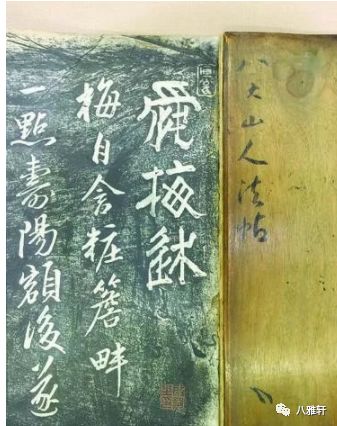 八大山人法帖
愛梅述
梅自含粧簷畔
一點壽陽額後遂
八雅轩